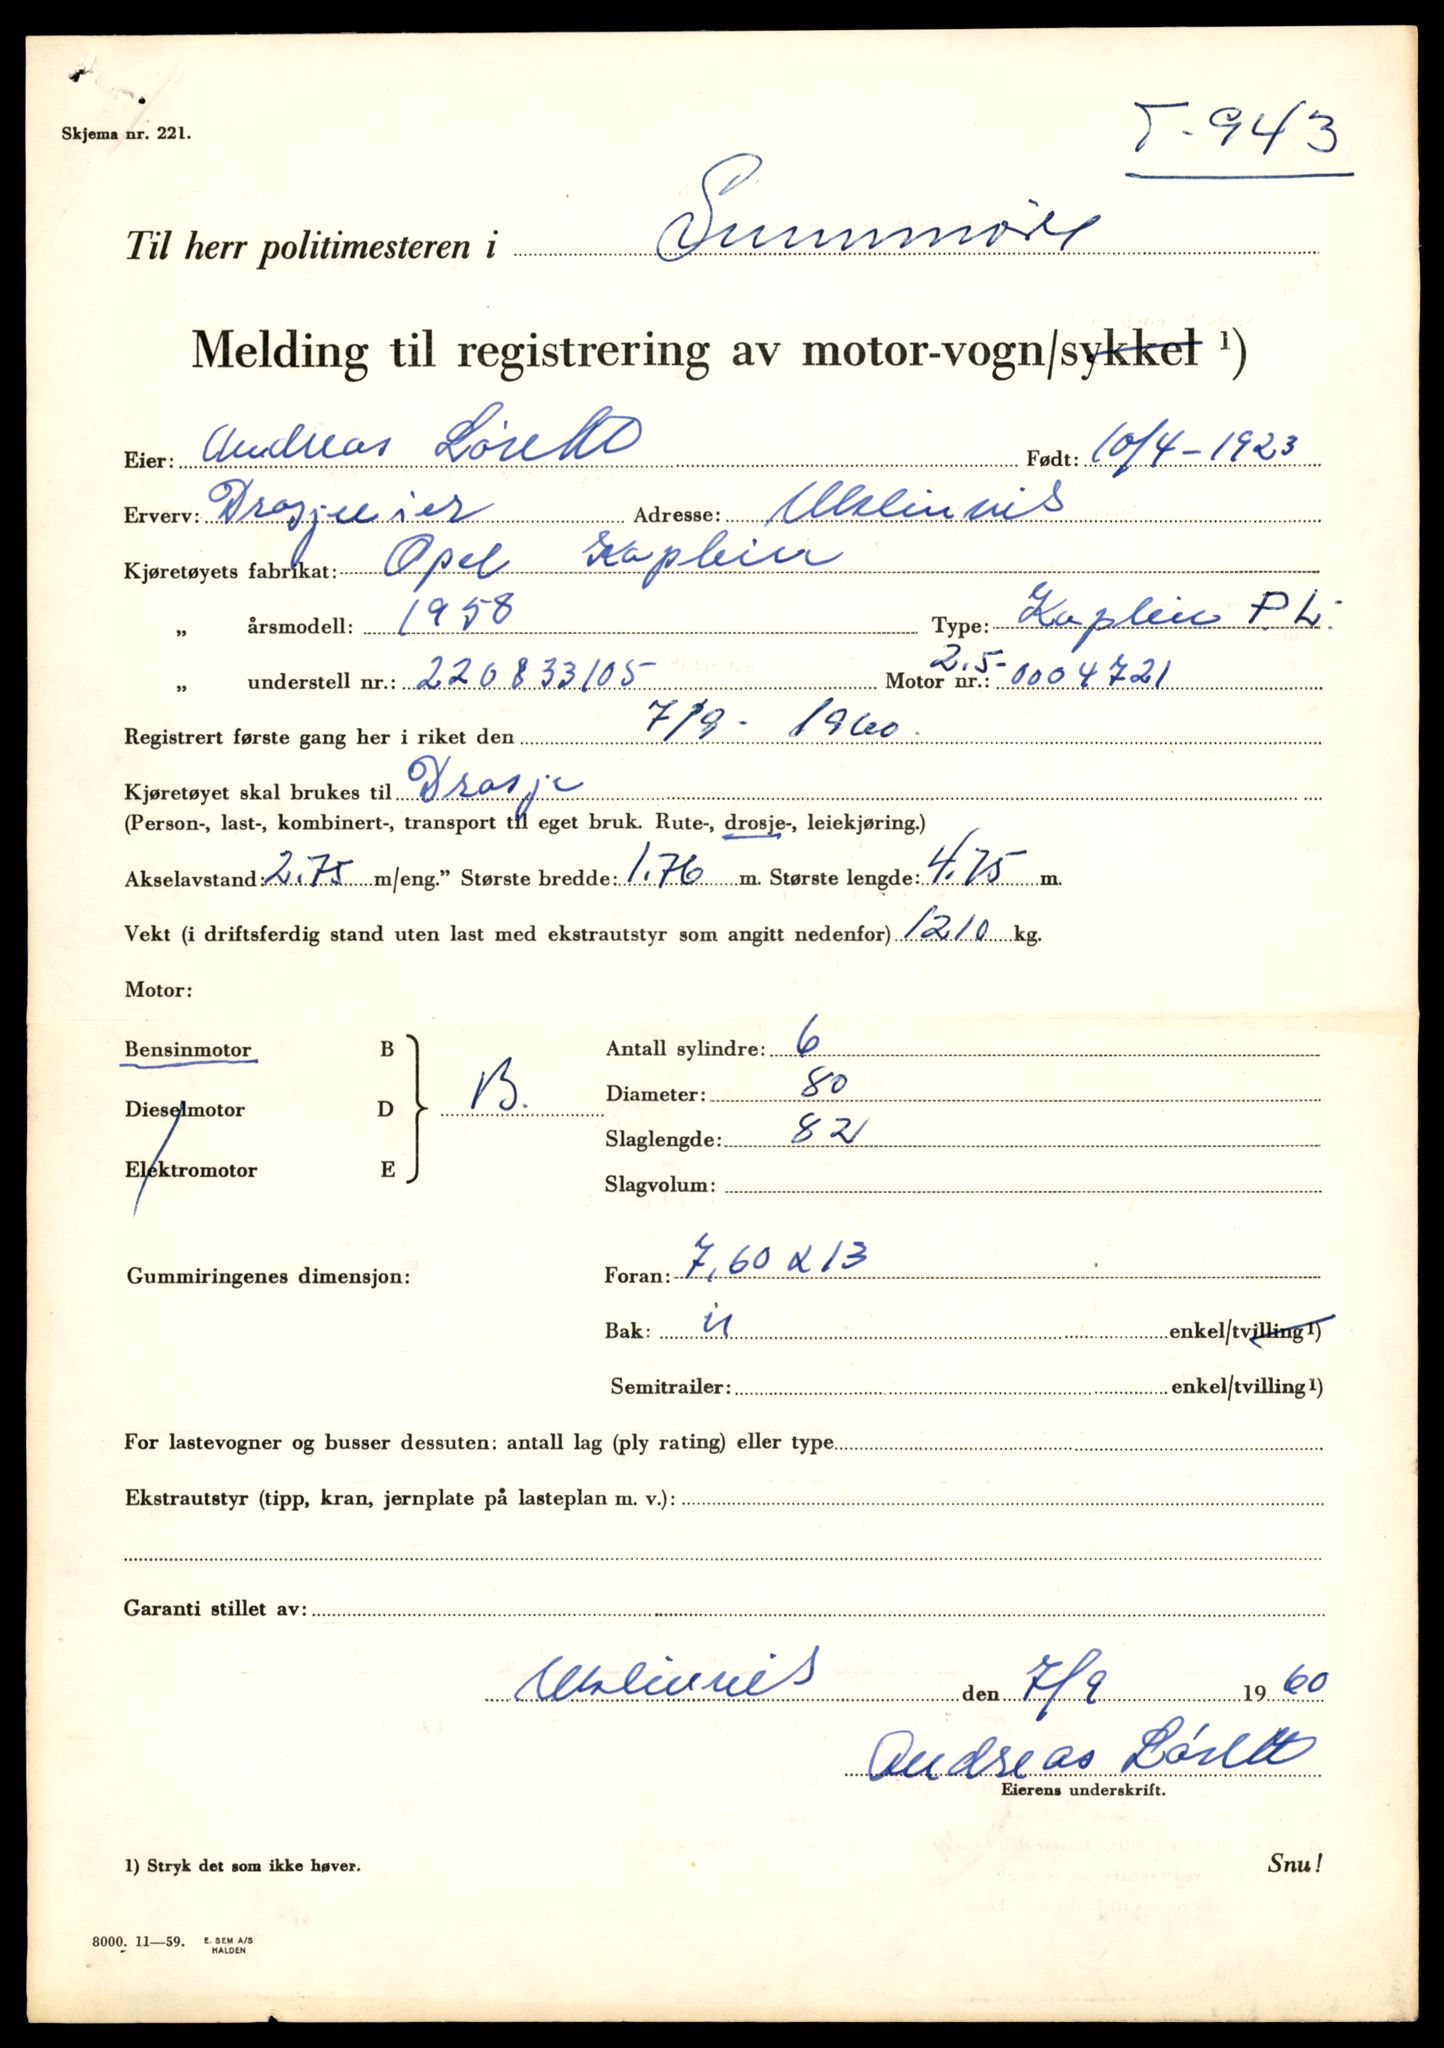 Skjema nr. 221.
T-943
Til herr politimesteren i Sunnmøre
Melding til registrering av motor-vogn/sykkel ¹)
Eier: Andreas Løsett Født: 10/4-1923
Erverv: Drosjeeier Adresse:
Kjøretøyets fabrikat: Opel Kaptein
„ årsmodell: 1958 Type: Kaptein P.L.
„ understell nr.: 220833105 Motor nr.: 2.5-0004721
Registrert første gang her i riket den 7/9- 1960.
Kjøretøyet skal brukes til Drosje
(Person-, last-, kombinert-, transport til eget bruk. Rute-, drosje-, leiekjøring.)
Akselavstand: 2.75 m/eng.” Største bredde: 1.76 m. Største lengde: 4.75 m.
Vekt (i driftsferdig stand uten last med ekstrautstyr som angitt nedenfor) 1210 kg.
Motor:
Bensinmotor B
Dieselmotor D
Elektromotor E
B.
Antall sylindre: 6
Diameter: 80
Slaglengde: 82
Slagvolum:
Gummiringenes dimensjon: Foran: 7,60 x 13
Bak: " enkel/tvilling ¹)
Semitrailer: enkel/tvilling ¹)
For lastevogner og busser dessuten: antall lag (ply rating) eller type
Ekstrautstyr (tipp, kran, jernplate på lasteplan m. v.):
Garanti stillet av:
den 7/9 1960
Andreas Løsett
Eierens underskrift.
1) Stryk det som ikke høver.
Snu!
8000. 11—59. E. SEM A/S
HALDEN